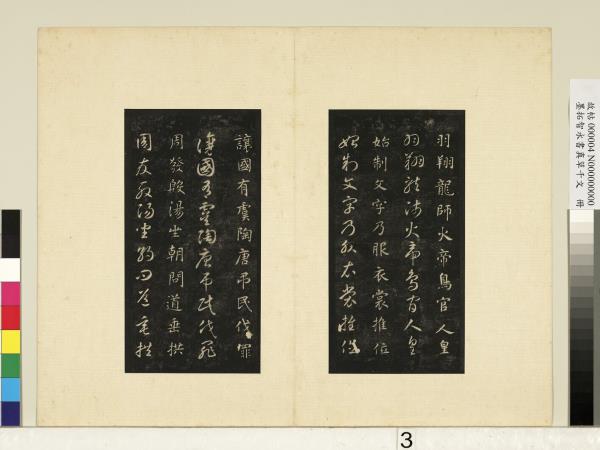 故帖 000004 N000000000
墨拓智永書真草千文 冊
羽翔龍師火帝鳥官人皇
羽翔龍師火帝鳥官人皇
始制文字乃服衣裳推位
始制文字乃服衣裳推位
讓國有虞陶唐吊民伐罪
讓國有虞陶唐吊民伐罪
周發殷湯坐朝問道垂拱
周發殷湯坐朝問道垂拱
3